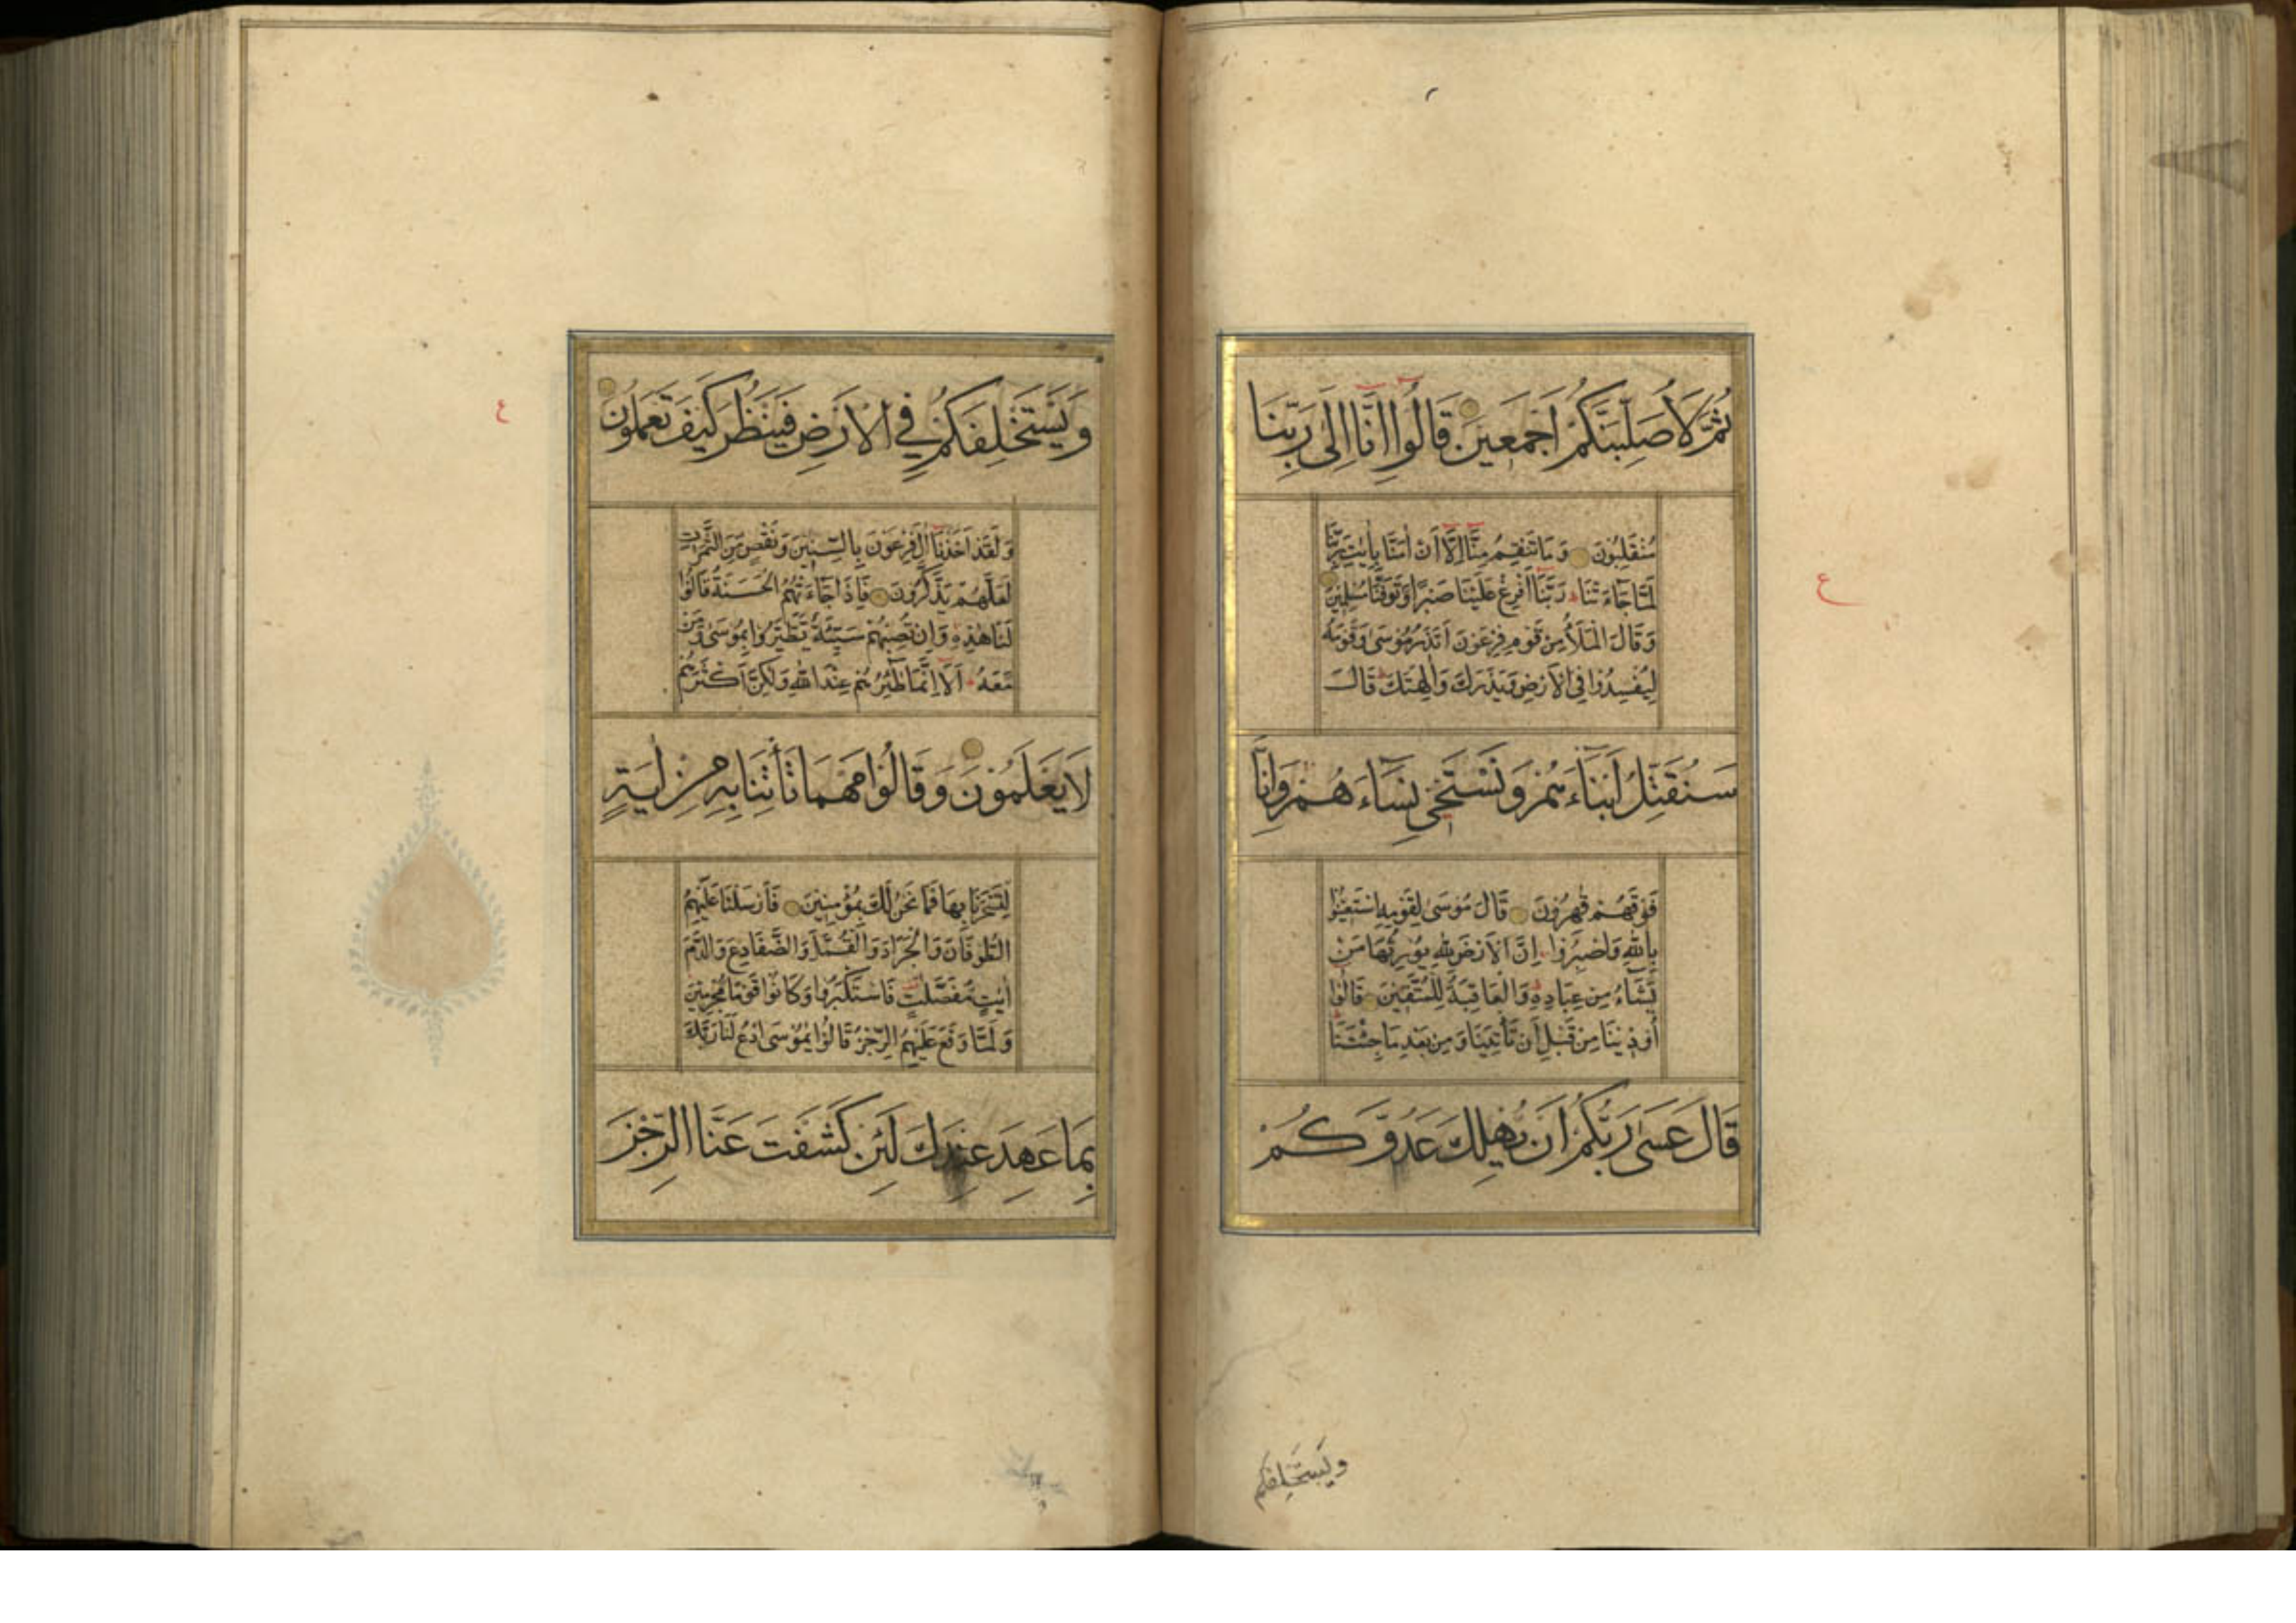 ثُمَّ لَأُصَلِّبَنَّكُمْ أَجْمَعِينَ قَالُوا إِنَّا إِلَىٰ رَبِّنَا
مُنْقَلِبُونَ وَمَا تَنْقِمُ مِنَّا إِلَّا أَنْ اٰمَنَّا بِاٰيٰتِ رَبِّنَا
لَمَّا جَاءَتْنَا رَبَّنَا أَفْرِغْ عَلَيْنَا صَبْرًا وَتَوَفَّنَا مُسْلِمِينَ
وَقَالَ الْمَلَأُ مِنْ قَوْمِ فِرْعَوْنَ أَتَذَرُ مُوسَىٰ وَقَوْمَهُ
لِيُفْسِدُوا فِي الْأَرْضِ وَيَذَرَكَ وَاٰلِهَتَكَ قَالَ
سَنُقَتِّلُ أَبْنَاءَهُمْ وَنَسْتَحْيِي نِسَاءَهُمْ وَإِنَّا
فَوْقَهُمْ قٰهِرُونَ قَالَ مُوسَىٰ لِقَوْمِهِ اسْتَعِينُوا
بِاللّٰهِ وَاصْبِرُوا إِنَّ الْأَرْضَ لِلّٰهِ يُورِثُهَا مَنْ
يَشَاءُ مِنْ عِبَادِهِ وَالْعَاقِبَةُ لِلْمُتَّقِينَ قَالُوا
أُوذِينَا مِنْ قَبْلِ أَنْ تَأْتِيَنَا وَمِنْ بَعْدِ مَا جِئْتَنَا
قَالَ عَسَىٰ رَبُّكُمْ أَنْ يُهْلِكَ عَدُوَّكُمْ
ويستخلفكم
ع
وَيَسْتَخْلِفَكُمْ فِي الْأَرْضِ فَيَنْظُرَ كَيْفَ تَعْمَلُونَ
وَلَقَدْ أَخَذْنَا اٰلَ فِرْعَوْنَ بِالسِّنِينَ وَنَقْصٍ مِنَ الثَّمَرٰتِ
لَعَلَّهُمْ يَذَّكَّرُونَ فَإِذَا جَاءَتْهُمُ الْحَسَنَةُ قَالُوا
لَنَا هٰذِهِ وَإِنْ تُصِبْهُمْ سَيِّئَةٌ يَطَّيَّرُوا بِمُوسَىٰ وَمَنْ
مَعَهُ أَلَا إِنَّمَا طٰئِرُهُمْ عِنْدَ اللّٰهِ وَلٰكِنَّ أَكْثَرَهُمْ
لَا يَعْلَمُونَ وَقَالُوا مَهْمَا تَأْتِنَا بِهِ مِنْ اٰيَةٍ
لِتَسْحَرَنَا بِهَا فَمَا نَحْنُ لَكَ بِمُؤْمِنِينَ فَأَرْسَلْنَا عَلَيْهِمُ
الطُّوفَانَ وَالْجَرَادَ وَالْقُمَّلَ وَالضَّفَادِعَ وَالدَّمَ
اٰيٰتٍ مُفَصَّلٰتٍ فَاسْتَكْبَرُوا وَكَانُوا قَوْمًا مُجْرِمِينَ
وَلَمَّا وَقَعَ عَلَيْهِمُ الرِّجْزُ قَالُوا يٰمُوسَى ادْعُ لَنَا رَبَّكَ
بِمَا عَهِدَ عِنْدَكَ لَئِنْ كَشَفْتَ عَنَّا الرِّجْزَ
ع